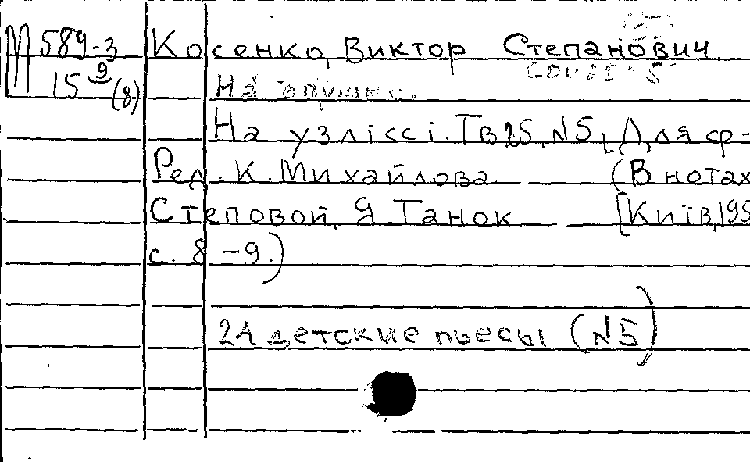 М 589-3 Косенко, Виктор Степанович
15 9 (8)
На опушке.
На узліссі. Тв25, N5. [Для ф-
Ред. К. Михайлова (В нотах
Степовой, Я. Танок [Київ, 195
с. 8-9.)
24 детские пьесы (N5)